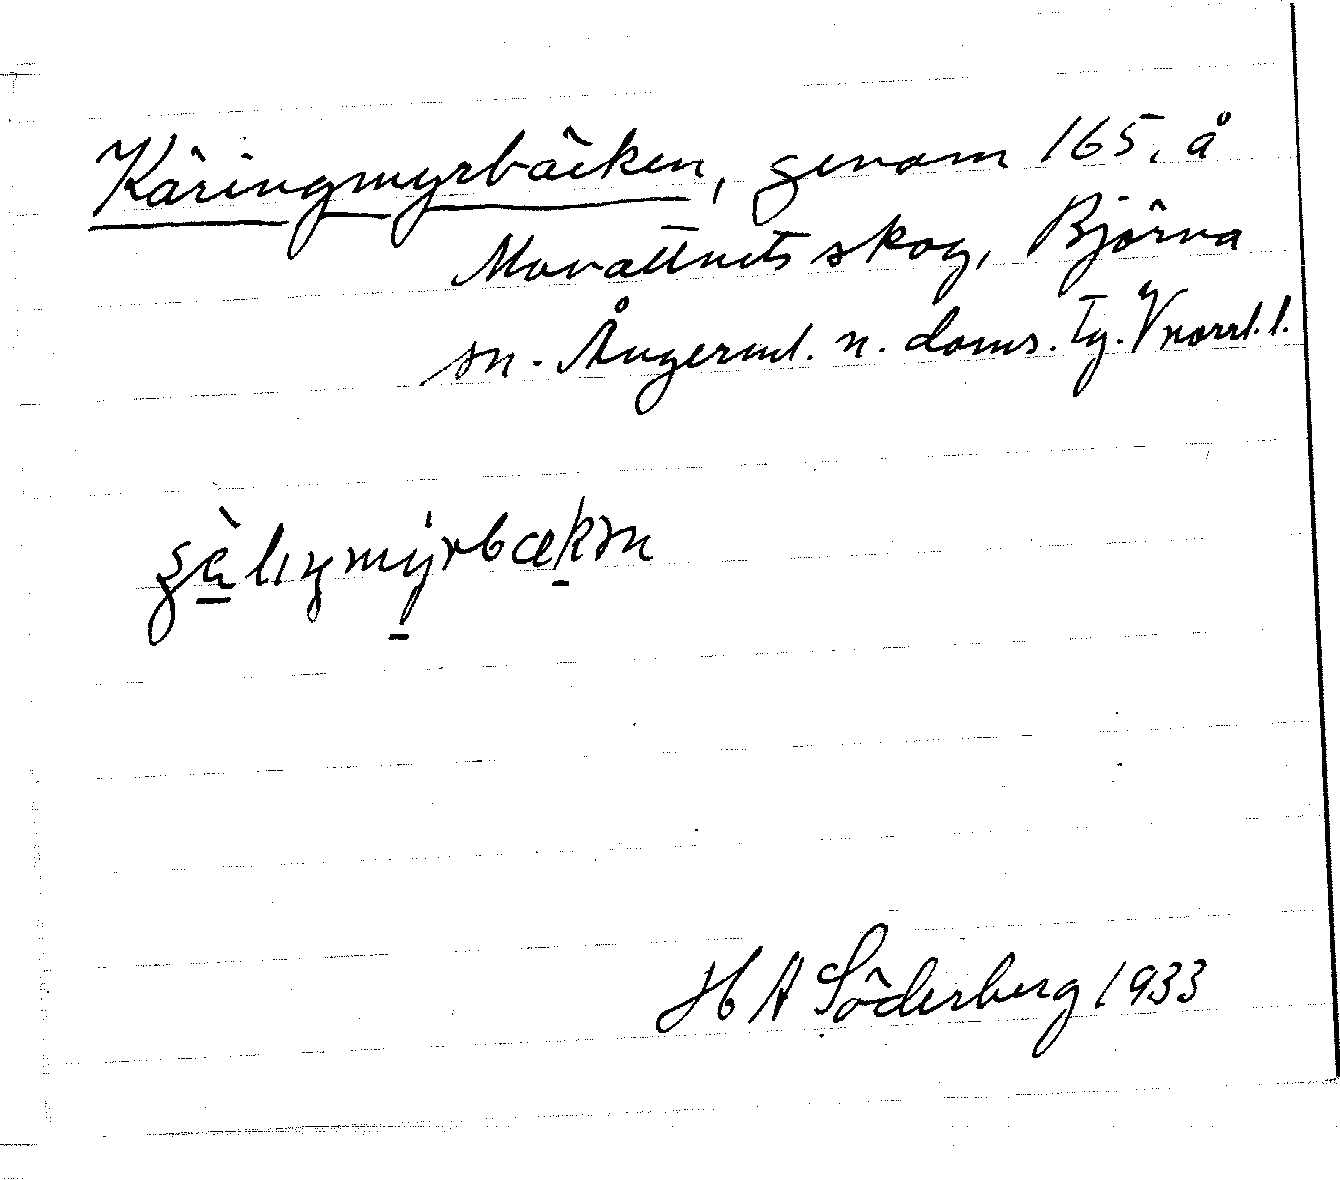 Käringmyrbäcken, genom 165. å
Movattnets skog, Björna
sn. Ångerml. n. doms. Tg. Vnorrl. l.
H A Söderberg 1933